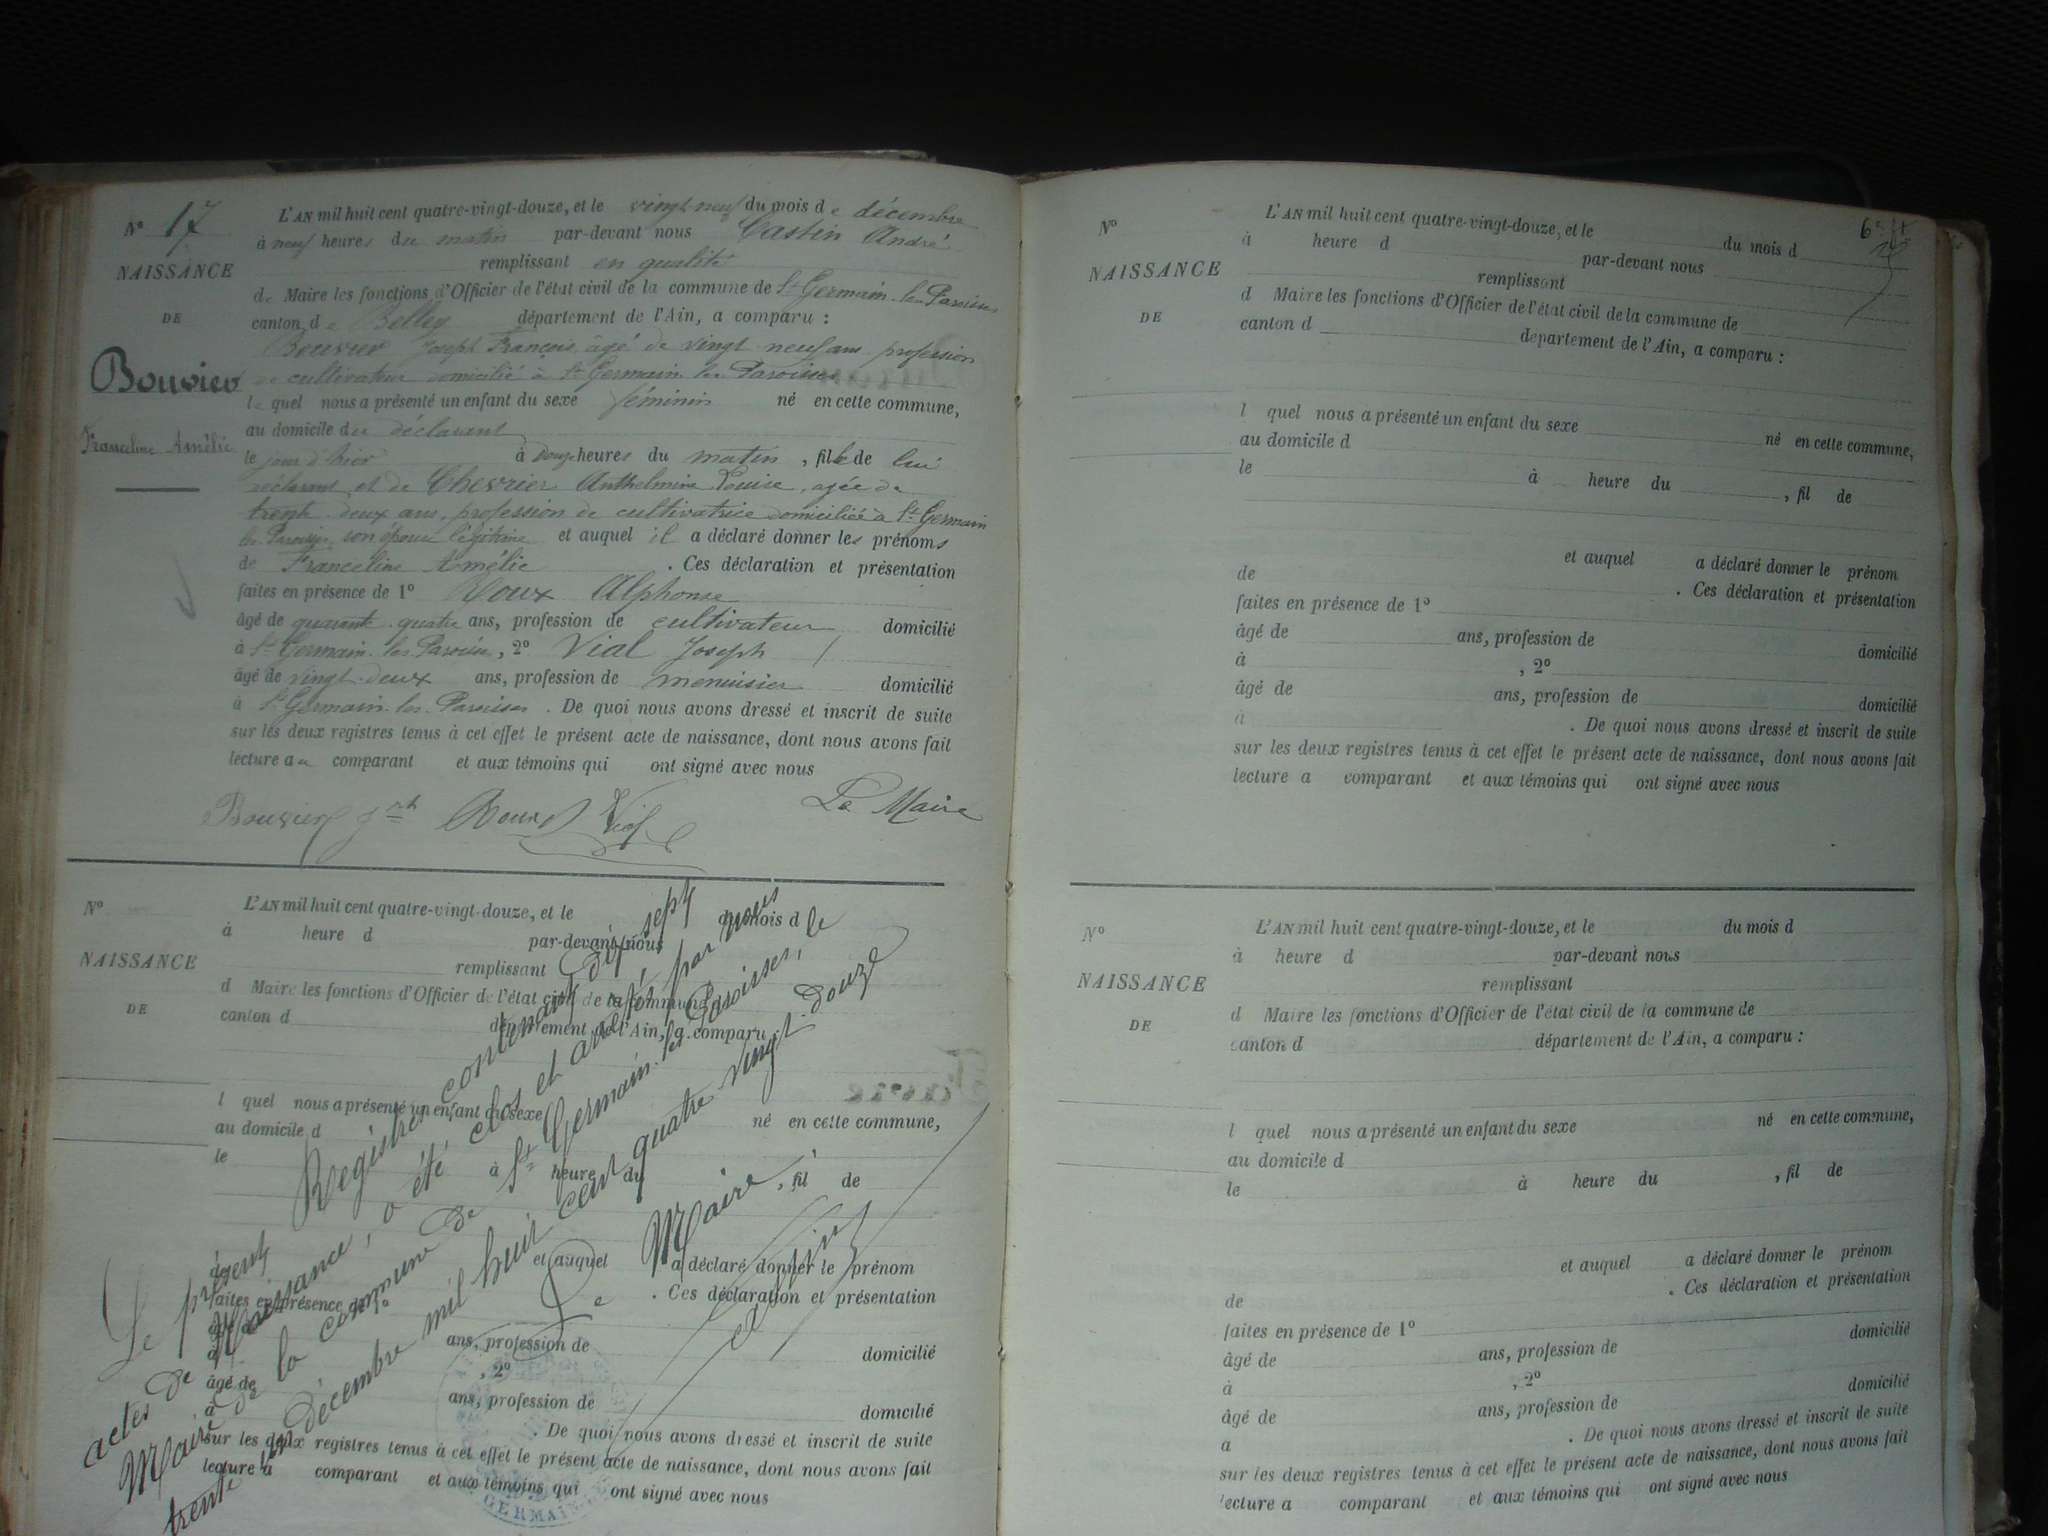 N° 17
NAISSANCE
DE
Bouvier
Franceline Amélie
L'AN mil huit cent quatre-vingt-douze, et le vingt-neuf du mois de décembre
à neuf heures du matin par-devant nous Castin André
remplissant en qualité
de Maire les fonctions d'Officier de l'état civil de la commune de St Germain-les-Paroisses
canton de Belley département de l'Ain, a comparu :
Bouvier Joseph François, âgé de vingt neuf ans profession
de cultivateur domicilié à St Germain les Paroisses
le quel nous a présenté un enfant du sexe féminin né en cette commune,
au domicile du déclarant
le jour d'hier à douze heures du matin, fille de lui
déclarant et de Chevrier Anthelmine Louise, agée de
trente-deux ans, profession de cultivatrice domiciliée à St Germain
les Paroisses, son épouse légitime et auquel il a déclaré donner les prénoms
de Franceline Amélie . Ces déclaration et présentation
faites en présence de 1° Roux Alphonse
âgé de quarante-quatre ans, profession de cultivateur domicilié
à St Germain-les-Paroisses, 2° Vial Joseph
âgé de vingt-deux ans, profession de menuisier domicilié
à St Germain-les-Paroisses . De quoi nous avons dressé et inscrit de suite
sur les deux registres tenus à cet effet le présent acte de naissance, dont nous avons fait
lecture au comparant et aux témoins qui ont signé avec nous
Bouvier Roux Vial Le Maire
N°
NAISSANCE
DE
L'AN mil huit cent quatre-vingt-douze, et le du mois d
à heure d par-devant nous
remplissant
d Maire les fonctions d'Officier de l'état civil de la commune
canton d département de l'Ain, a comparu :
l quel nous a présenté un enfant du sexe né en cette commune,
au domicile d
le à heure du , fil de
et auquel a déclaré donner le prénom
de . Ces déclaration et présentation
faites en présence de 1°
âgé de ans, profession de domicilié
à , 2°
âgé de ans, profession de domicilié
à . De quoi nous avons dressé et inscrit de suite
sur les deux registres tenus à cet effet le présent acte de naissance, dont nous avons fait
lecture a comparant et aux témoins qui ont signé avec nous
Le présent Registre contenant dix sept
actes de Naissance, a été clos et arrêté par nous
Maire de la commune de St Germain-les-Paroisses, le
trente un décembre mil huit cent quatre-vingt-douze
Le Maire
Castin
GERMAIN
N°
NAISSANCE
DE
L'AN mil huit cent quatre-vingt-douze, et le du mois d
à heure d par-devant nous
remplissant
d Maire les fonctions d'Officier de l'état civil de la commune de
canton d département de l'Ain, a comparu :
l quel nous a présenté un enfant du sexe né en cette commune,
au domicile d
le à heure du , fil de
et auquel a déclaré donner le prénom
de . Ces déclaration et présentation
faites en présence de 1°
âgé de ans, profession de domicilié
à , 2°
âgé de ans, profession de domicilié
à . De quoi nous avons dressé et inscrit de suite
sur les deux registres tenus à cet effet le présent acte de naissance, dont nous avons fait
lecture a comparant et aux témoins qui ont signé avec nous
N°
NAISSANCE
DE
L'AN mil huit cent quatre-vingt-douze, et le du mois d
à heure d par-devant nous
remplissant
d Maire les fonctions d'Officier de l'état civil de la commune de
canton d département de l'Ain, a comparu :
l quel nous a présenté un enfant du sexe né en cette commune,
au domicile d
le à heure du , fil de
et auquel a déclaré donner le prénom
de . Ces déclaration et présentation
faites en présence de 1°
âgé de ans, profession de domicilié
à , 2°
âgé de ans, profession de domicilié
a . De quoi nous avons dressé et inscrit de suite
sur les deux registres tenus à cet effet le présent acte de naissance, dont nous avons fait
lecture a comparant et aux témoins qui ont signé avec nous